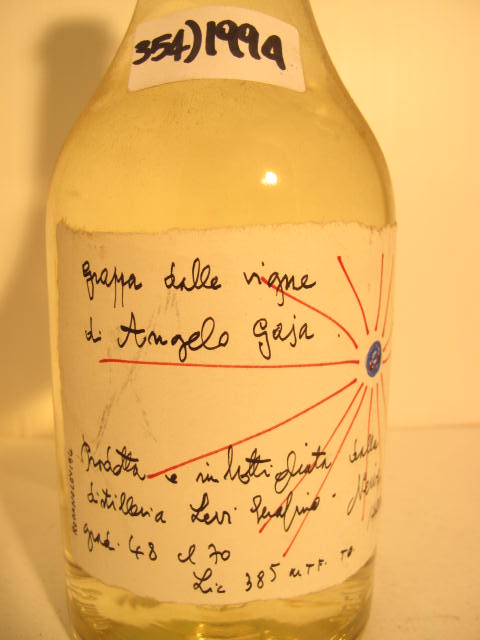 354) 1994
grappa dalle vigne
di Angelo Gaja.
Prodotta e imbottigliata dalla
distilleria Levi Serafino - Neive
grad. 48 cl 70
Lic 385 UTF. TO
ROMANO LEVI